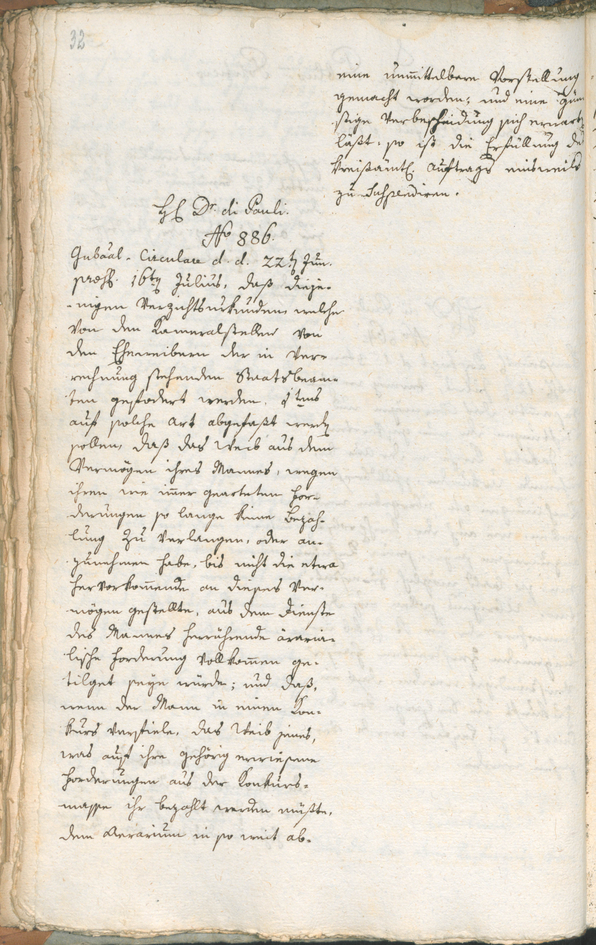 32
eine unmittelbare Vorstellung
gemacht worden; und eine gün-
stige Verbescheidung sich erwart
läßt, so ist die Erfüllung des
Kreisämtl. Auftrags einsweils
zu suspendiren.
H Dr. di Pauli.
No 886.
Gubãal-Circulare d. d. 22ten Jun.
præs. 16ten Julius, daß dieje-
nigen Verzichtsurkunden, welche
von den Kameralstellen von
den Eheweibern der in Ver-
rechnung stehenden Staatsbeam-
ten gefodert werden, 1tens
auf solche Art abgefaßt werdn
sollen, daß das Weib aus dem
Vermögen ihres Mannes, wegen
ihren wie im̄er gearteten For-
derungen so lange keine Bezah-
lung zu verlangen, oder an-
zunehmen habe, bis nicht die etwa
hervorkom̄ende an dieses Ver-
mögen gestellte, aus dem Dienste
des Mannes herrührende ärari-
lische Forderung vollkom̄en ge-
tilget seyn würde; und daß,
wenn der Mann in einen Kon-
kurs verfiele, das Weib jenes,
was auf ihre gehörig erwiesene
Forderungen aus der Konkurs-
masse ihr bezahlt werden müßte,
dem Aerarium in so weit ab-